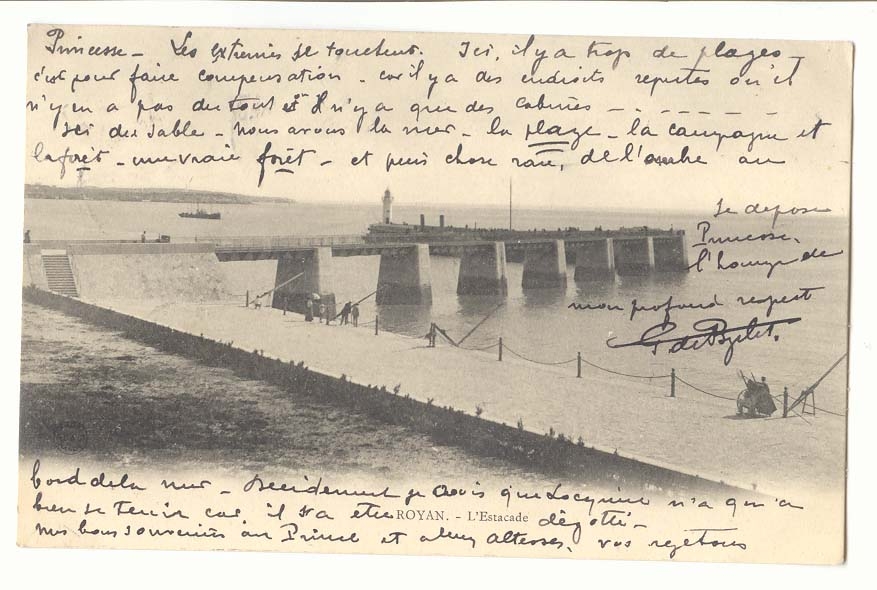 Princesse - Les extremes se touchent. Ici, il y a trop de plages -
c'est pour faire compensation - car il y a des endroits reputés où il
n'y en a pas du tout et Il n'y a que des cabines - - - - - -
ici du sable - nous avons la mer - la plage - la campagne et
la forêt - une vraie forêt - et puis chose rare, de l'ombre au
bord de la mer - Decidement je crois que n'a qu'a
bien se tenir car il a eté dégotté -
nos bons souvenirs au Prince et a leurs altesses, vos rejetons
Je depose
Princesse,
l'homage de
mon profond respect
G. de
ROYAN. - L'Estacade